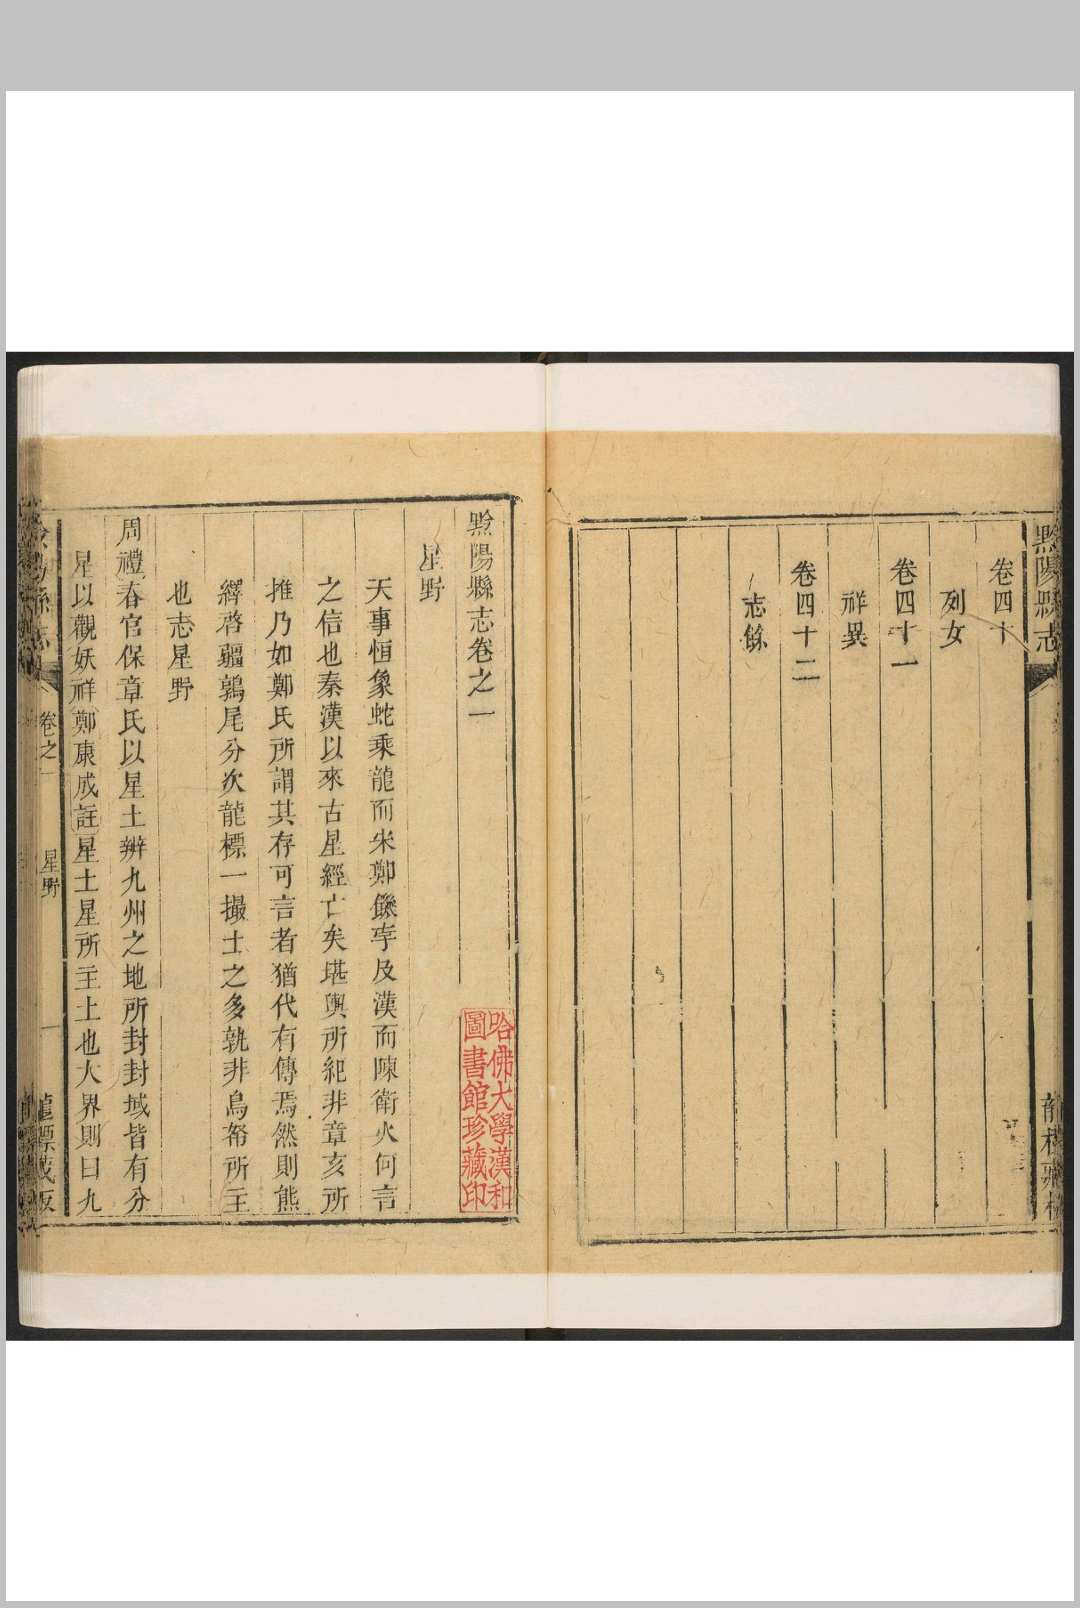 黔陽縣志
卷四十
列女
卷四十一
祥異
卷四十二
志餘
黔陽縣志卷之一
星野
天事恒象蛇乘龍而宋鄭饑孛及漢而陳衛火何言
之信也秦漢以來古星經亡矣堪輿所紀非章亥所
推乃如鄭氏所謂其存可言者猶代有傳焉然則熊
繹啓疆鶉尾分次龍標一撮土之多孰非鳥帑所主
也志星野
周禮春官保章氏以星土辨九州之地所封封域皆有分
星以觀妖祥鄭康成註星土星所主土也大界則曰九
卷之一
星野
一
龍標
哈佛大學漢和
圖書館珍藏印